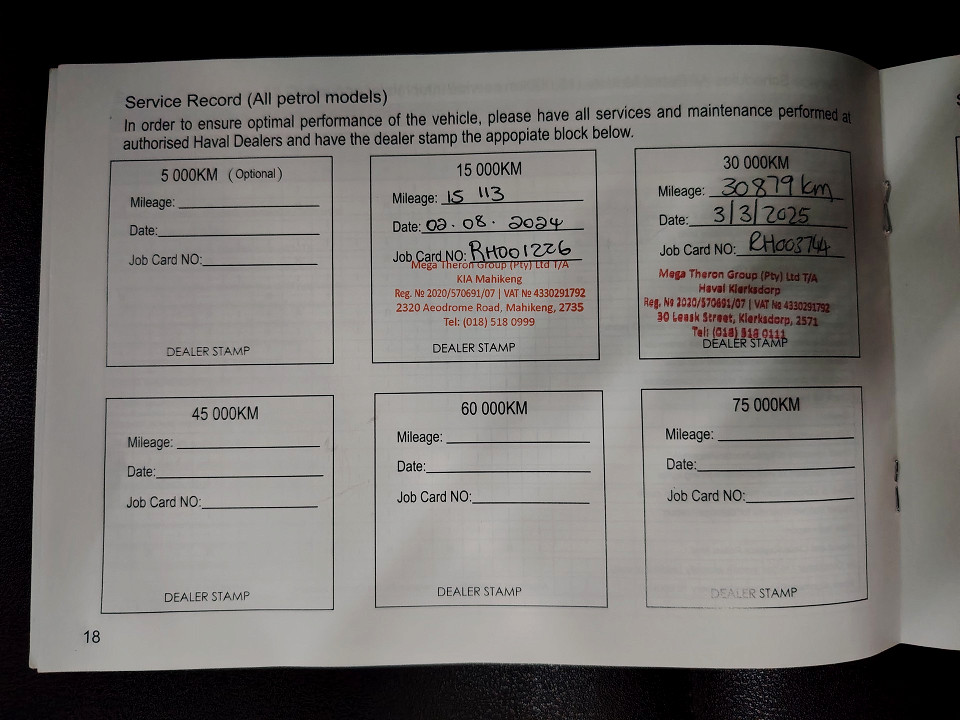 Service Record (All petrol models)
In order to ensure optimal performance of the vehicle, please have all services and maintenance performed at
authorised Haval Dealers and have the dealer stamp the appopiate block below.
5 000KM (Optional)
Mileage:
Date:
Job Card NO:
DEALER STAMP
15 000KM
Mileage: 15 113
Date: 02.08.2024
Job Card NO: RH001226
Mega Theron Group (Pty) Ltd T/A
KIA Mahikeng
Reg. № 2020/570691/07 | VAT № 4330291792
2320 Aeodrome Road, Mahikeng, 2735
Tel: (018) 518 0999
DEALER STAMP
30 000KM
Mileage: 30879 km
Date: 3/3/2025
Job Card NO: RH003744
Mega Theron Group (Pty) Ltd T/A
Haval Klerksdorp
Reg. № 2020/570691/07 | VAT № 4330291792
30 Leask Street, Klerksdorp, 2571
Tel: (018) 518 0111
DEALER STAMP
45 000KM
Mileage:
Date:
Job Card NO:
DEALER STAMP
60 000KM
Mileage:
Date:
Job Card NO:
DEALER STAMP
75 000KM
Mileage:
Date:
Job Card NO:
DEALER STAMP
18